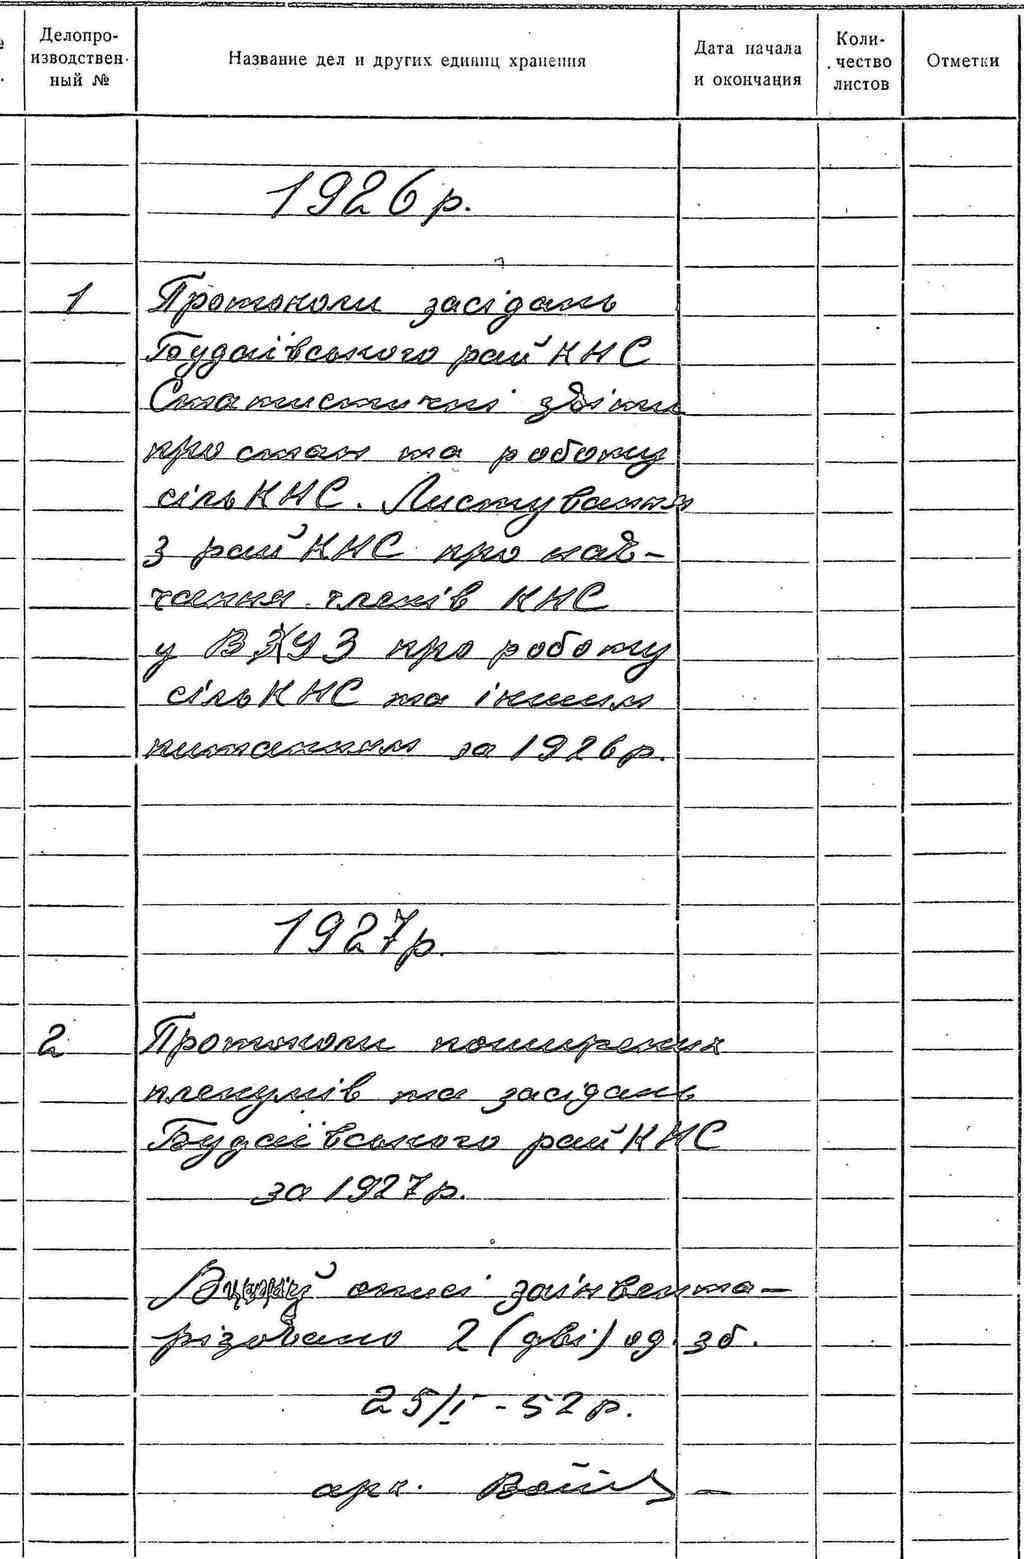 Делопро-
изводствен-
ный №
Название дел и других единиц хранения
Дата начала
и окончания
Коли-
чество
листов
Отметки
1926 р.
1 Протоколи засідань
Будаївського рай КНС
Статистичні звіти
про стан та роботу
сіль КНС. Листування
з рай КНС про нав-
чання членів КНС
у ВУЗ про роботу
сіль КНС та іншим
питанням за 1926 р.
1927 р.
2 Протоколи поширених
пленумів та засідань
Будаївського рай КНС
за 1927 р.
В цій описі заінвента-
різовано 2 (дві) од. зб.
25/II - 52 р.
арх.